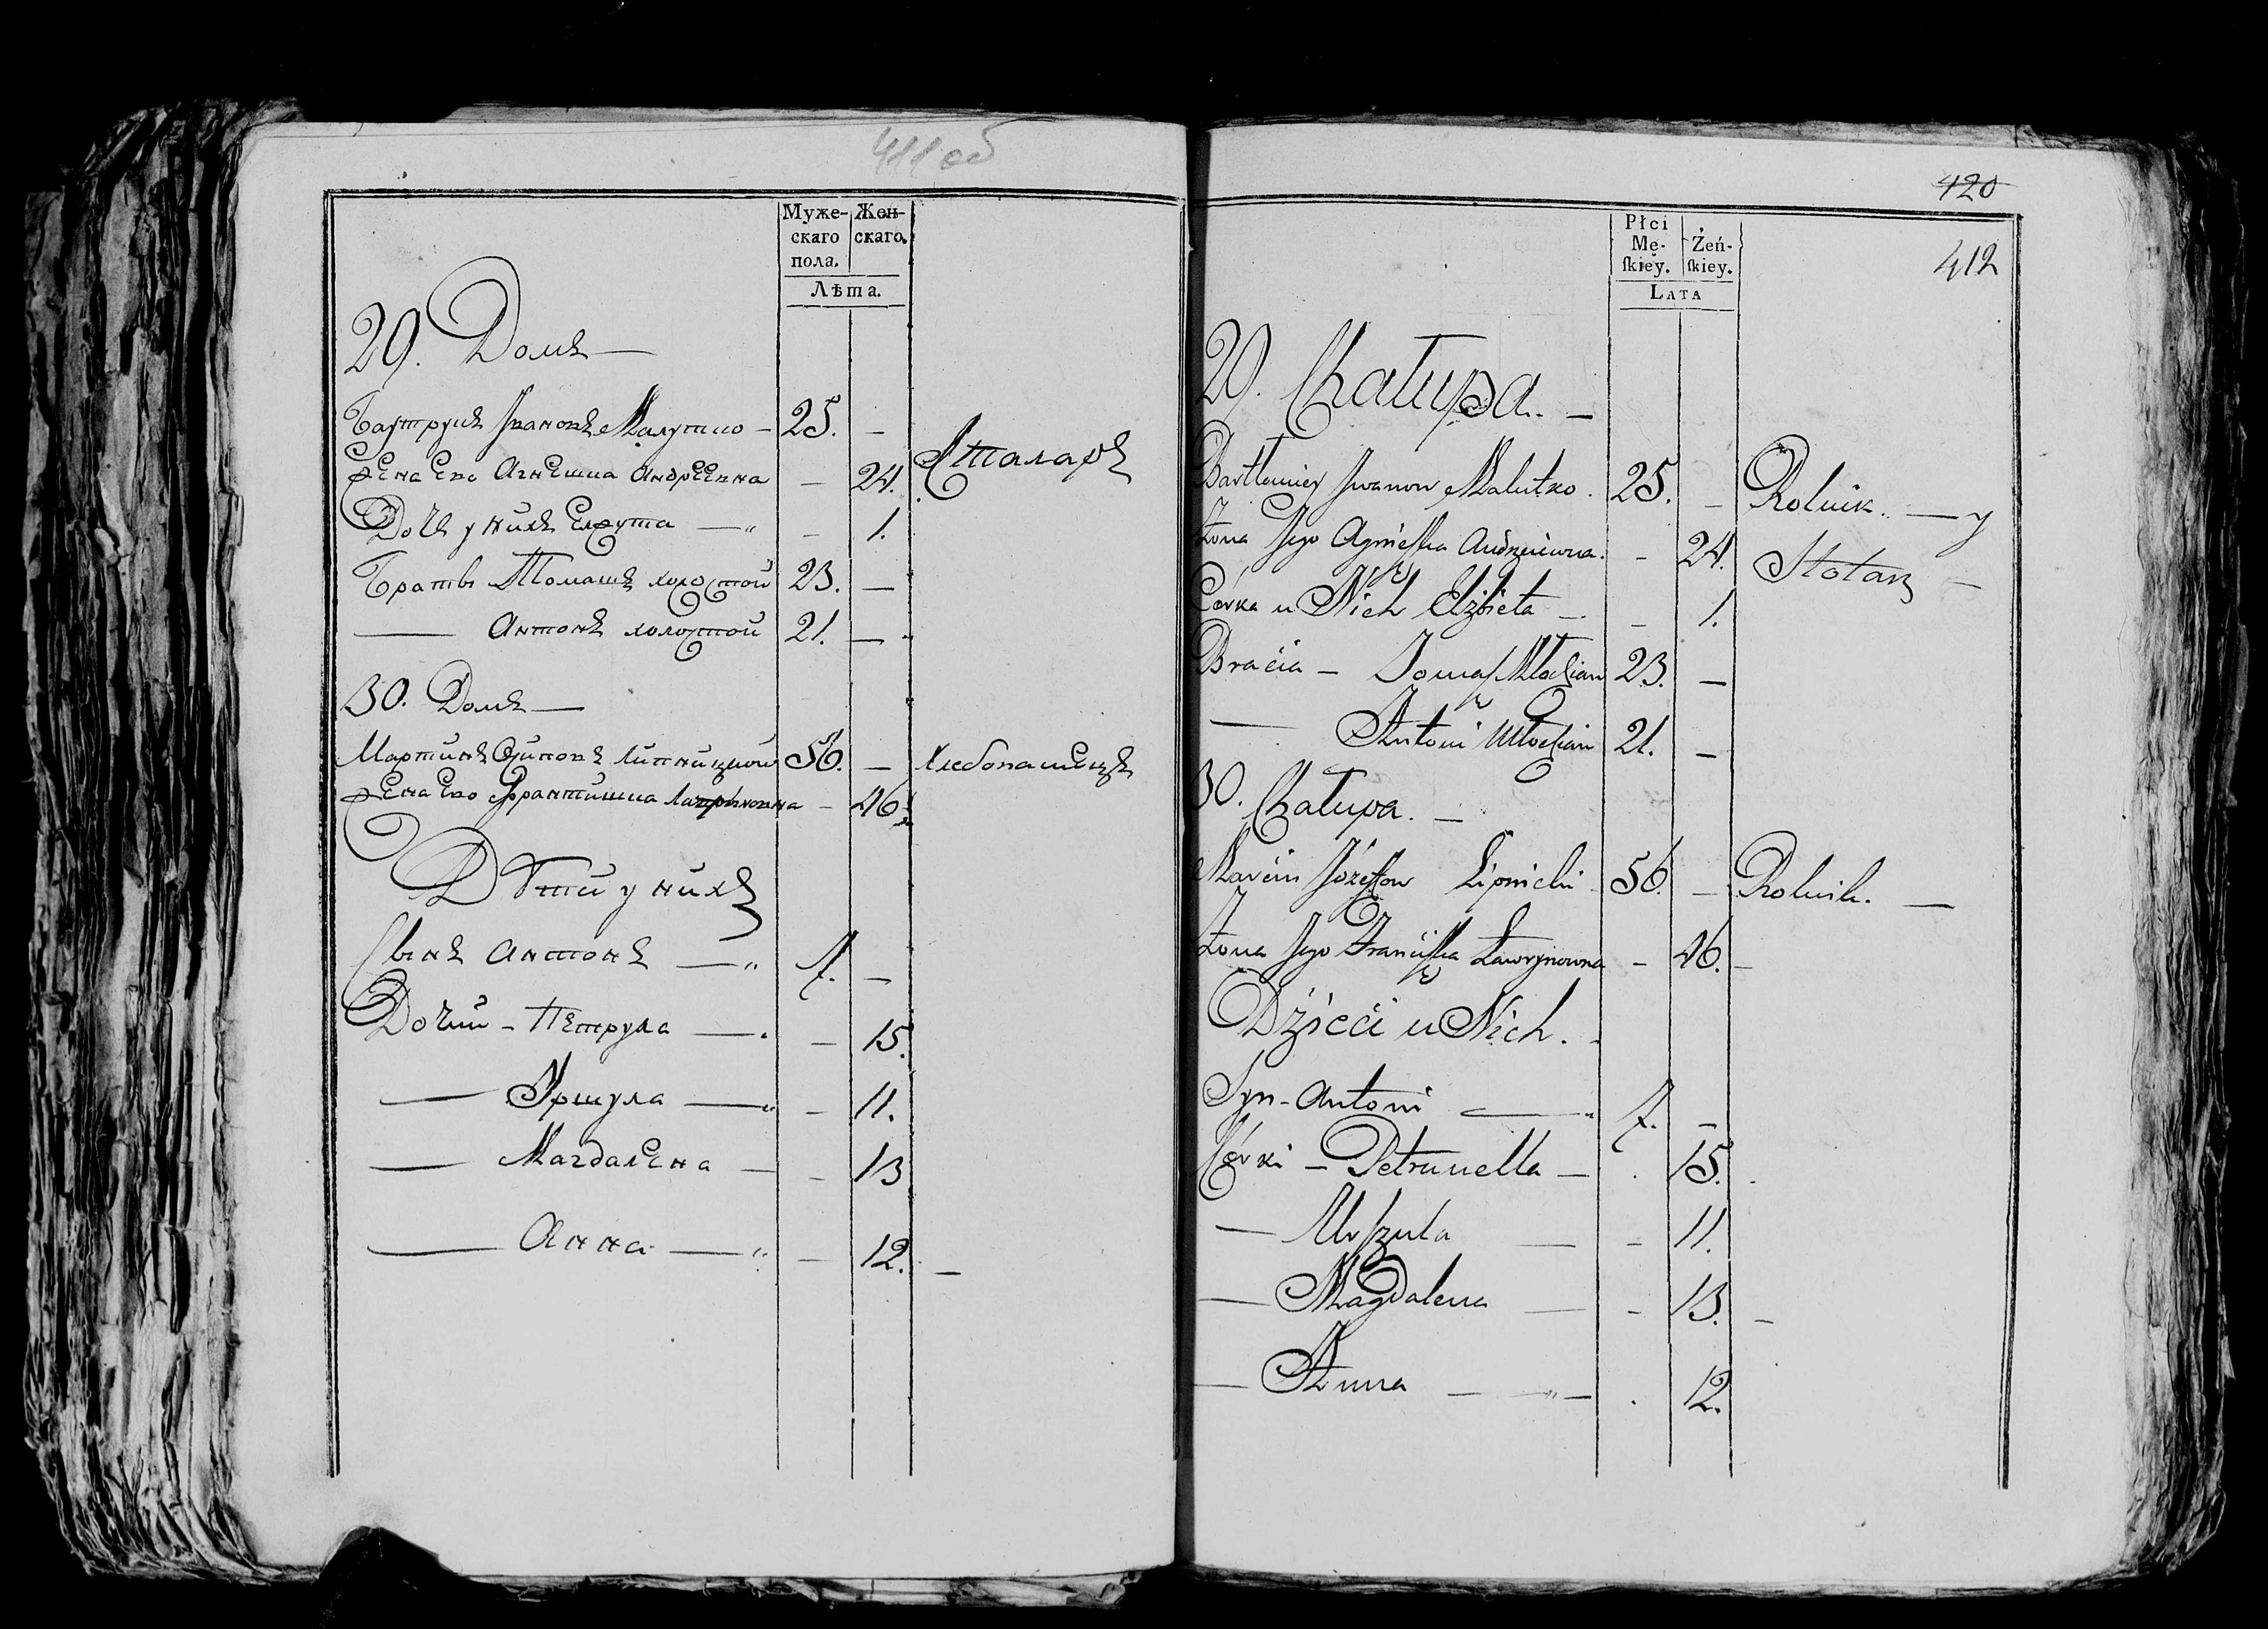 411 об
Муже- Жен-
скаго скаго.
пола.
Лѣта.
29. Домъ —
Баутрукъ Ивановъ Малутко — 25. —
Жена Ево Агнешка Андреевна — 24. Сталаръ
Дочь у нихъ Елжута — " — 1.
Братьи Томашъ холостой 23. —
— Антонъ холостой 21. —
30. Домъ —
Мартинъ Осиповъ Липницкой 56. — Хлебопашецъ
Жена Ево Франтишка — 46.
Дѣти у нихъ
Сынъ Антонъ — " 7. —
Дочки - Петрула — — 15.
— Уршула — " — 11.
— Магдалена — — 13
— Анна — " — 12. —
420
412
Płci
Mę- Żeń-
skiey. skiey.
Lata
29. Chałupa. —
Bartłomiey Jwanow Malutko. 25. — Rolnik. — y
Żona Jego Agnieszka Andrzeiewna. — 24. Stolarz —
Córka u Nich Elżbieta — — 1.
Bracia — Tomasz Młodzian 23. —
— Antoni Młodzian 21. —
30. Chałupa. —
Marcin Józefow Lipnicki 56. — Rolnik. —
Żona Jego Franciszka Ławrynowna — 46. —
Dzieci u Nich.
Syn - Antoni — " 7. —
Córki — Petrunella — . 15.
— Urszula — — 11.
— Magdalena — — 13. —
— Anna — " — . 12.